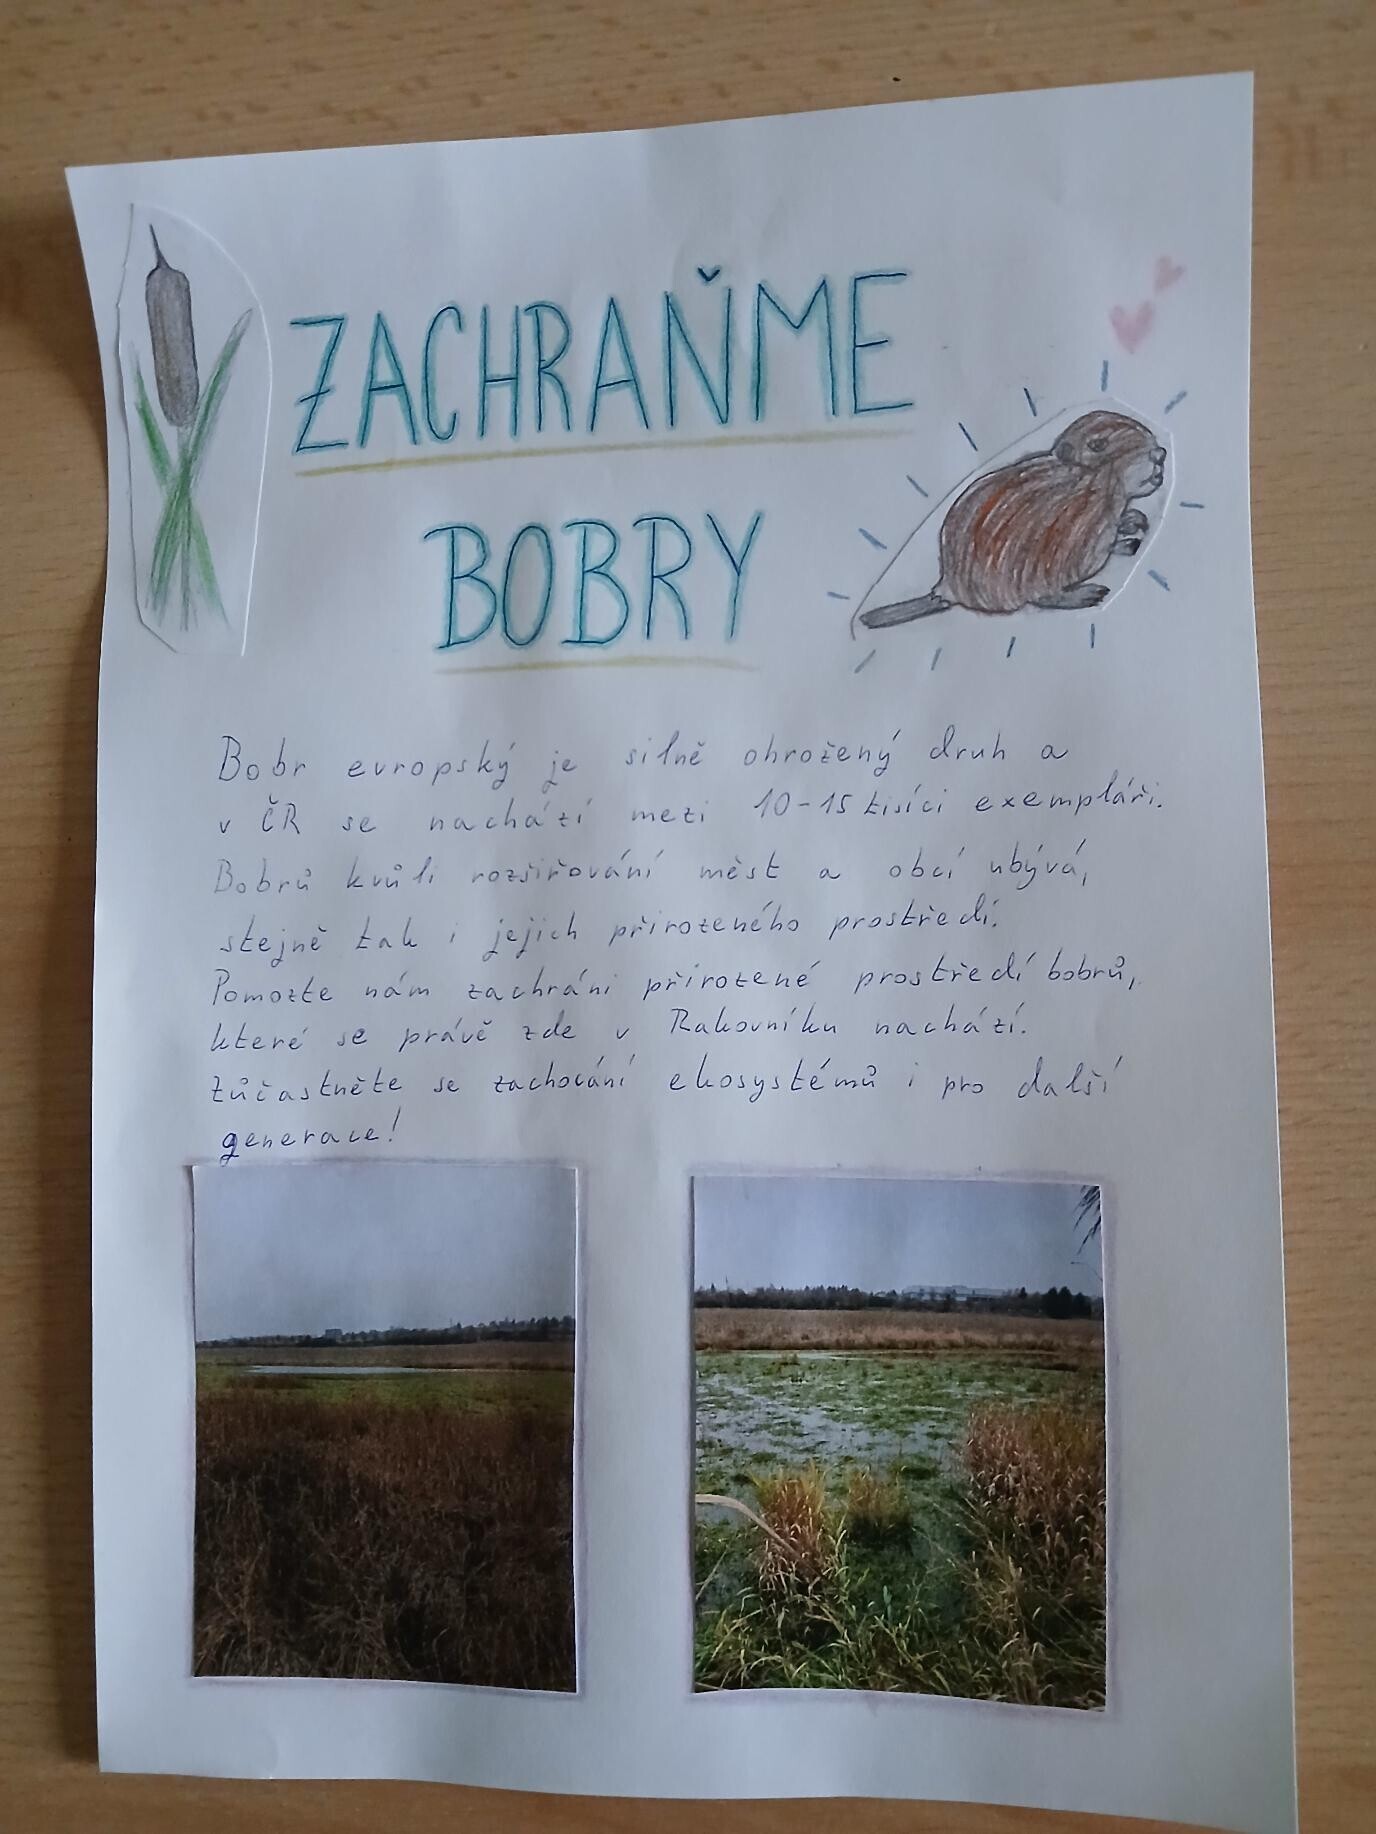 ZACHRAŇME
BOBRY
Bobr evropský je silně ohrožený druh a
v ČR se nachází mezi 10-15 tisíci exempláři.
Bobrů kvůli rozšiřování měst a obcí ubývá,
stejně tak i jejich přirozeného prostředí.
Pomozte nám zachráni přirozené prostředí bobrů,
které se právě zde v Rakovníku nachází.
Zůčastněte se zachování ekosystémů i pro další
generace!